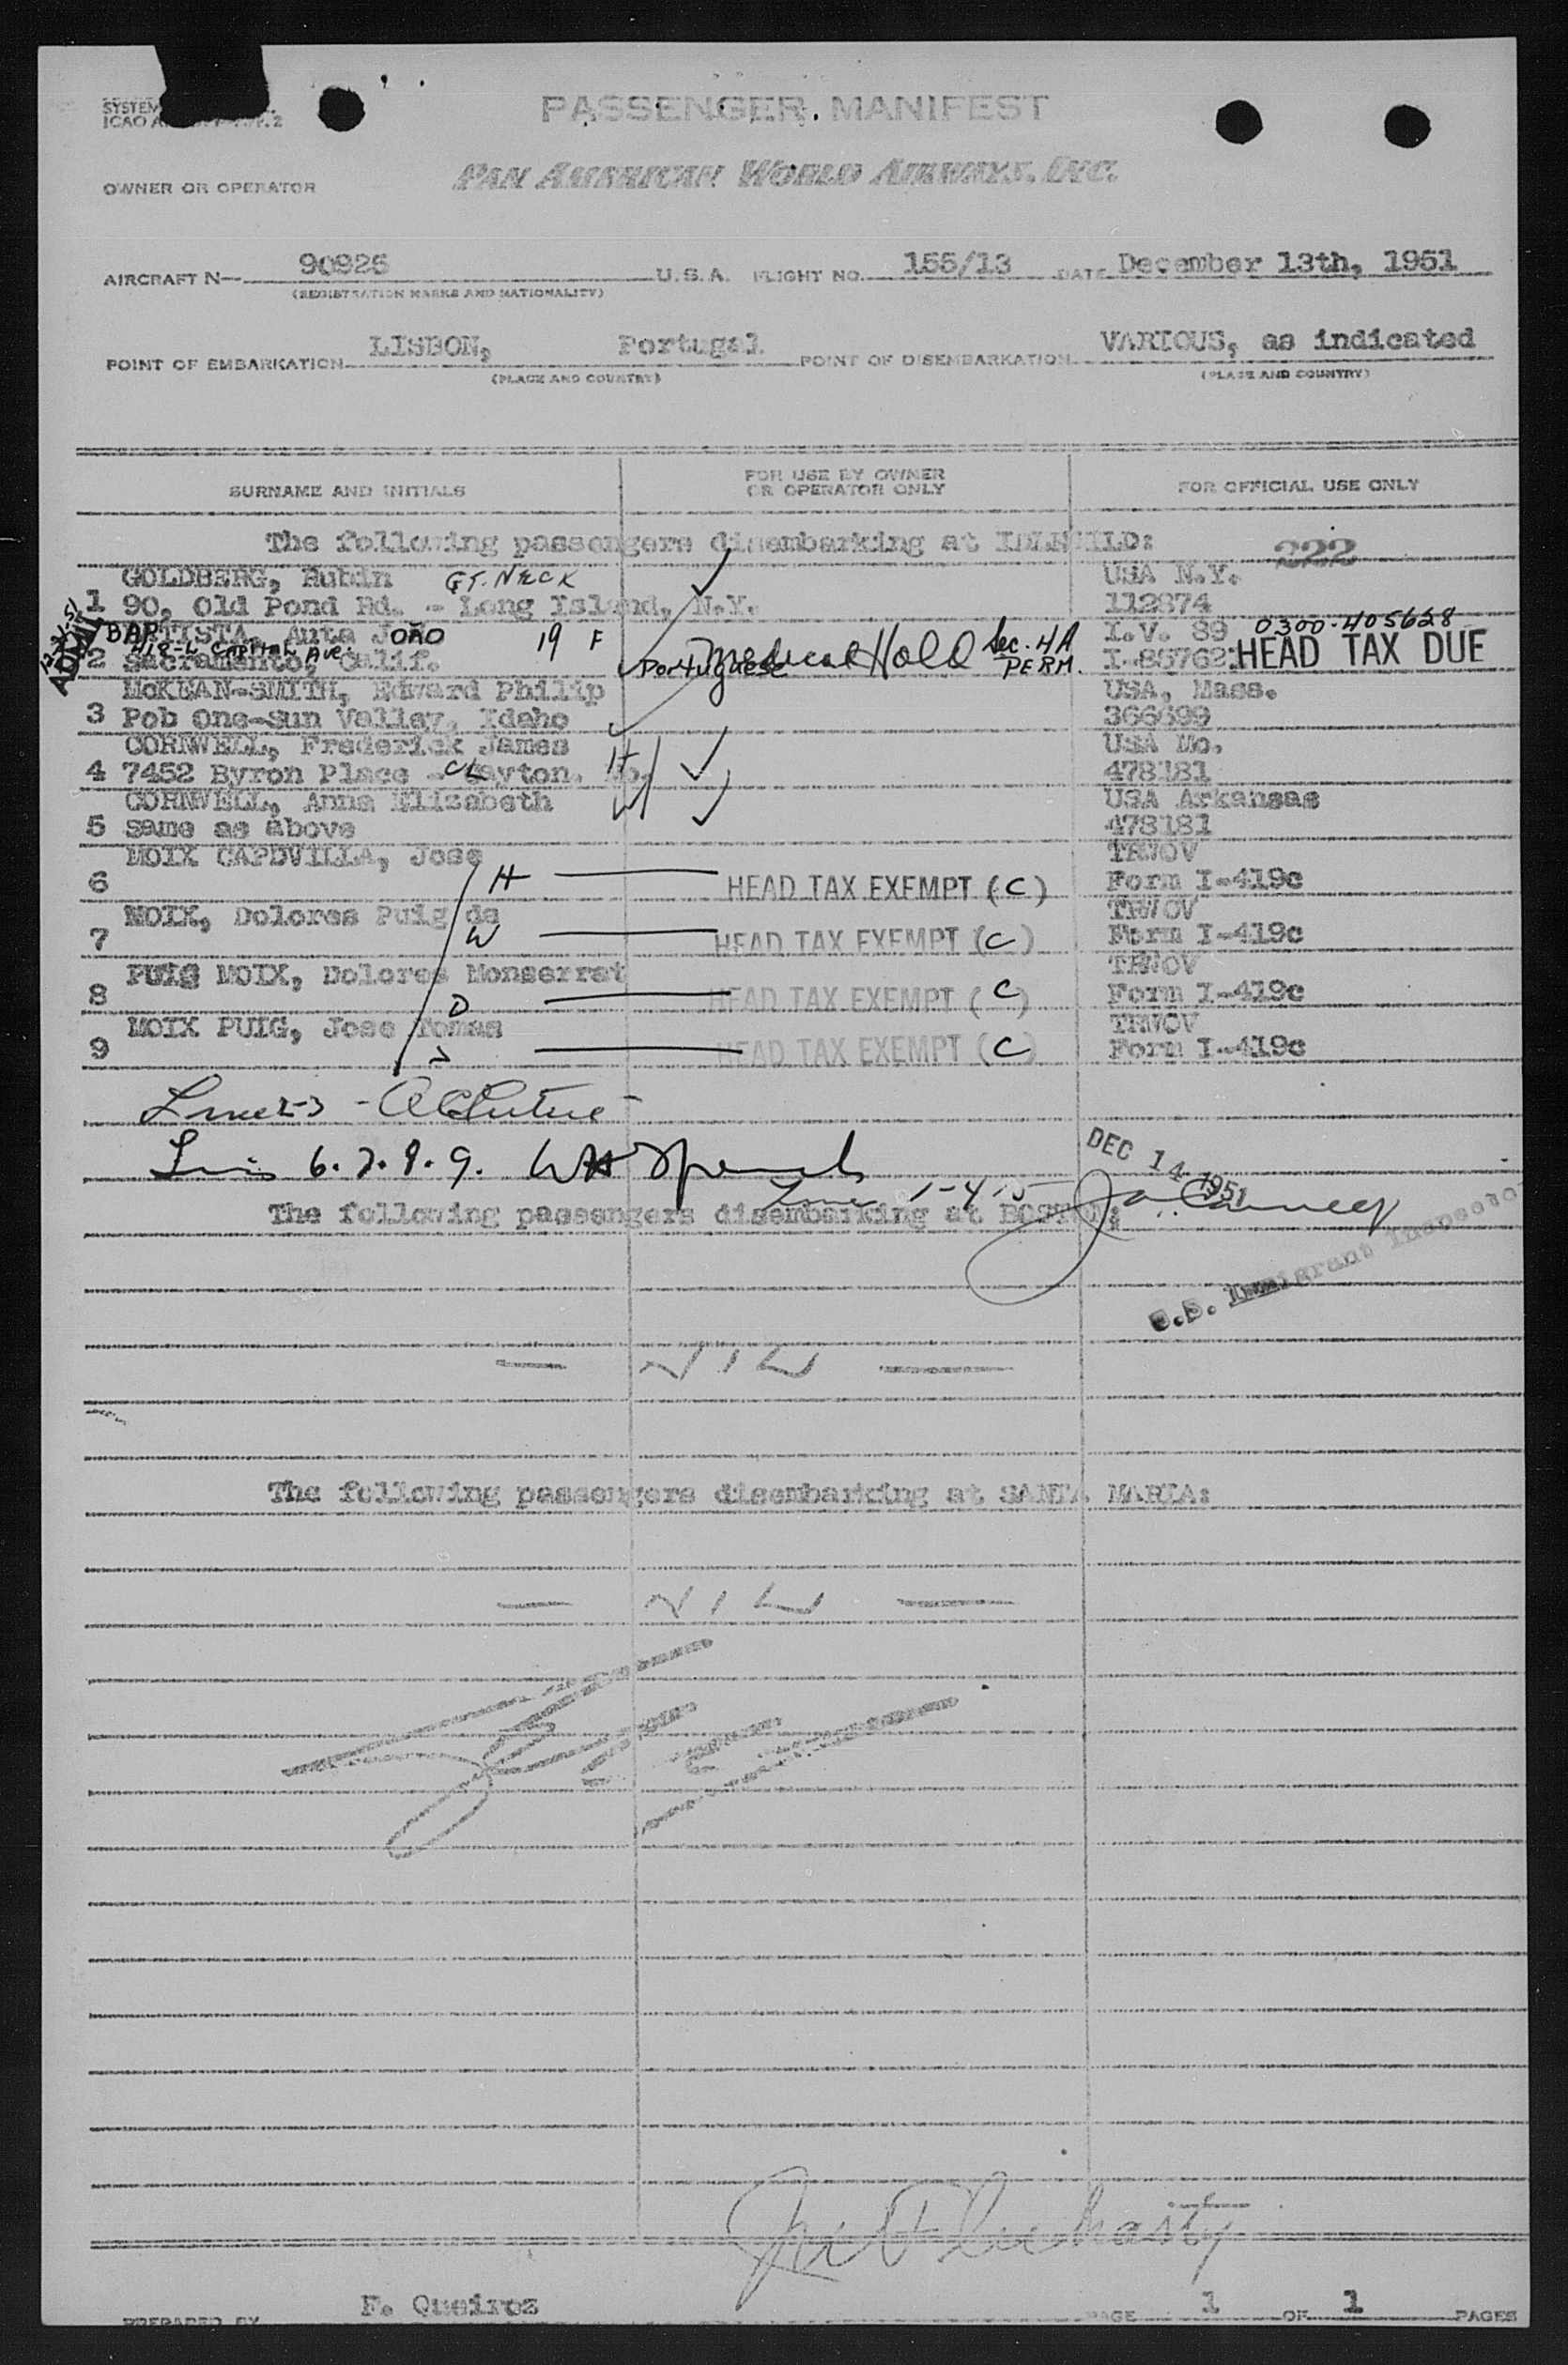 SYSTEM
ICAO
PASSENGER MANIFEST
PAN AMERICAN WORLD AIRWAYS, INC.
OWNER OR OPERATOR
AIRCRAFT N— 90925 U.S.A. FLIGHT NO. 155/13 DATE December 13th, 1951
(REGISTRATION MARKS AND NATIONALITY)
POINT OF EMBARKATION LISBON, Portugal POINT OF DISEMBARKATION VARIOUS, as indicated
(PLACE AND COUNTRY) (PLACE AND COUNTRY)
SURNAME AND INITIALS FOR USE BY OWNER OR OPERATOR ONLY FOR OFFICIAL USE ONLY
The following passengers disembarking at IDLEWILD: 222
GOLDBERG, Rubin GT. NECK USA N.Y.
1 90, Old Pond Rd. - Long Island, N.Y. 112874
BAPTISTA, Auta JOÃO 19 F I.V. 89 0300-405628
ADMIT 418-L CAPITAL AVE.
2 Sacramento, Calif. Portuguese Medical Hold Sec. 4A PERM. I-85762 HEAD TAX DUE
McKEAN-SMITH, Edward Philip USA, Mass.
3 Pob One-Sun Valley, Idaho 366699
CORNWELL, Frederick James H USA Mo.
4 7452 Byron Place - CLayton. Mo. 478181
CORNWELL, Anna Elizabeth W USA Arkansas
5 same as above 478181
MOIX CAPDVILLA, Jose TRWOV
6 H HEAD TAX EXEMPT (C) Form I-419c
MOIX, Dolores Puig de TRWOV
7 W HEAD TAX EXEMPT (C) Form I-419c
PUIG MOIX, Dolores Monserrat TRWOV
8 D HEAD TAX EXEMPT (C) Form I-419c
MOIX PUIG, Jose Tomas TRWOV
9 S HEAD TAX EXEMPT (C) Form I-419c
6.7.8.9.
DEC 14 1951
The following passengers disembarking at BOSTON:
U.S. Immigrant Inspector
— NIL —
The following passengers disembarking at SANTA MARIA:
— NIL —
PREPARED BY F. Queiroz PAGE 1 OF 1 PAGES